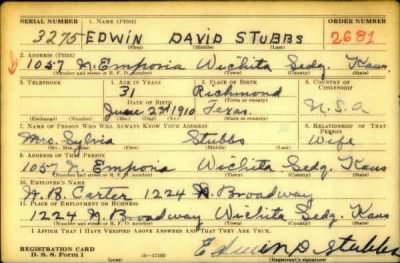 SERIAL NUMBER 1. NAME (Print) ORDER NUMBER
3275 EDWIN DAVID STUBBS 2681
(First) (Middle) (Last)
2. ADDRESS (Print)
1057 N. Emporia Wichita Sedg. Kans.
(Number and street or R. F. D. number) (Town) (County) (State)
3. TELEPHONE 4. AGE IN YEARS 5. PLACE OF BIRTH 6. COUNTRY OF CITIZENSHIP
31 Richmond
DATE OF BIRTH (Town or county)
June 22nd 1910 Texas. U.S.A
(Exchange) (Number) (Mo.) (Day) (Yr.) (State or country)
7. NAME OF PERSON WHO WILL ALWAYS KNOW YOUR ADDRESS 8. RELATIONSHIP OF THAT PERSON
Mrs. Sylvia Stubbs Wife
(Mr., Mrs., Miss) (First) (Middle) (Last)
9. ADDRESS OF THAT PERSON
1057 N. Emporia Wichita Sedg. Kans
(Number and street or R. F. D. number) (Town) (County) (State)
10. EMPLOYER'S NAME
W.B. Carter 1224 N. Broadway
11. PLACE OF EMPLOYMENT OR BUSINESS
1224 N. Broadway Wichita Sedg. Kans
(Number and street or R. F. D. number) (Town) (County) (State)
I AFFIRM THAT I HAVE VERIFIED ABOVE ANSWERS AND THAT THEY ARE TRUE.
REGISTRATION CARD
D. S. S. Form 1 16-17105 Edwin D Stubbs
(Registrant's signature)